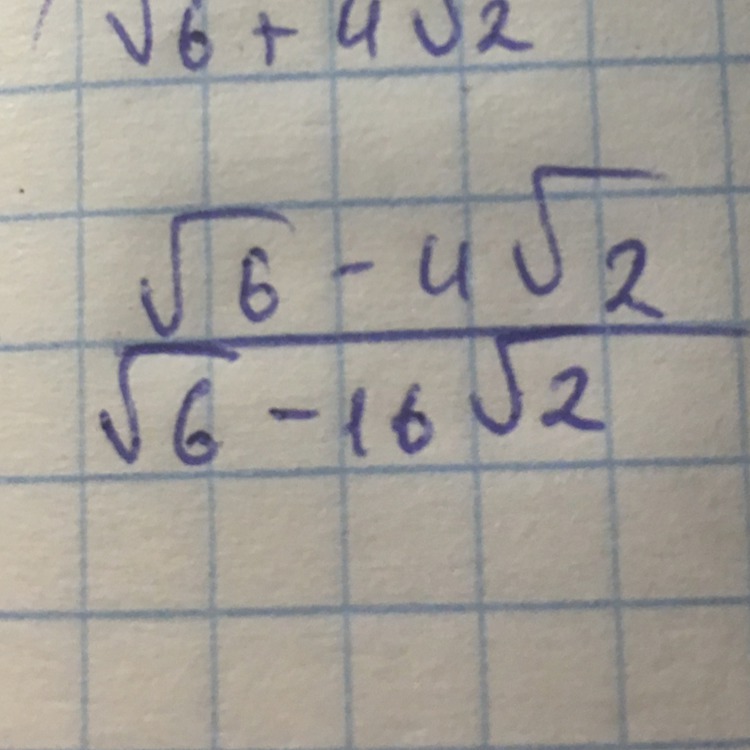 √6 + 4√2
√6 - 4√2
√6 - 16√2